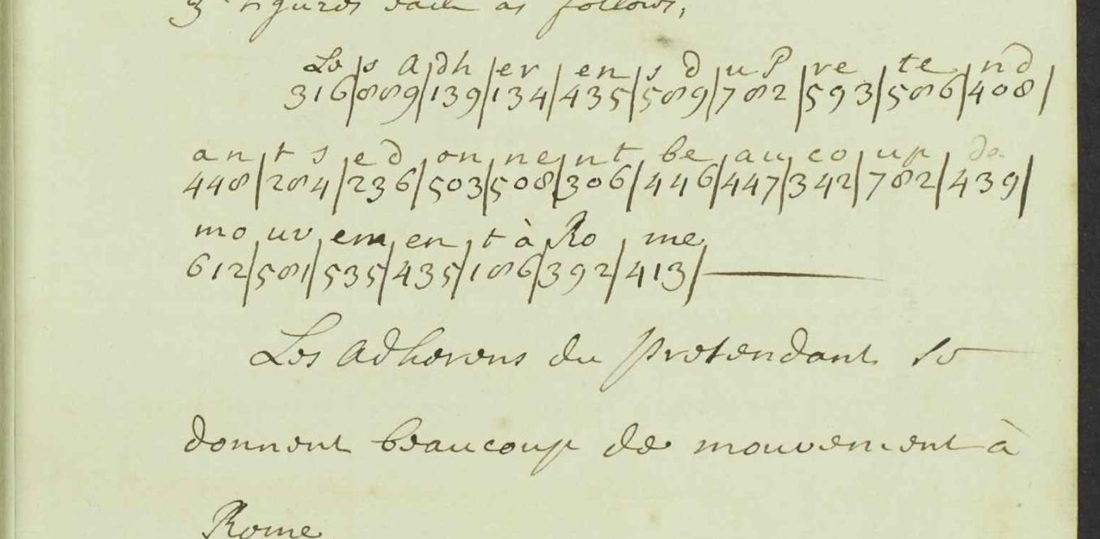 3 Figures each as follows,
Le s Adh er en s d u P re te nd
316/889/139/134/435/589/782/593/586/408/
an t s e d on ne nt be au co up de
448/284/236/503/508/306/446/447/342/782/439/
mo uv em en t à Ro me
612/581/535/435/186/392/413/
Les Adherens du pretendant se
donnent beaucoup de mouvement à
Rome